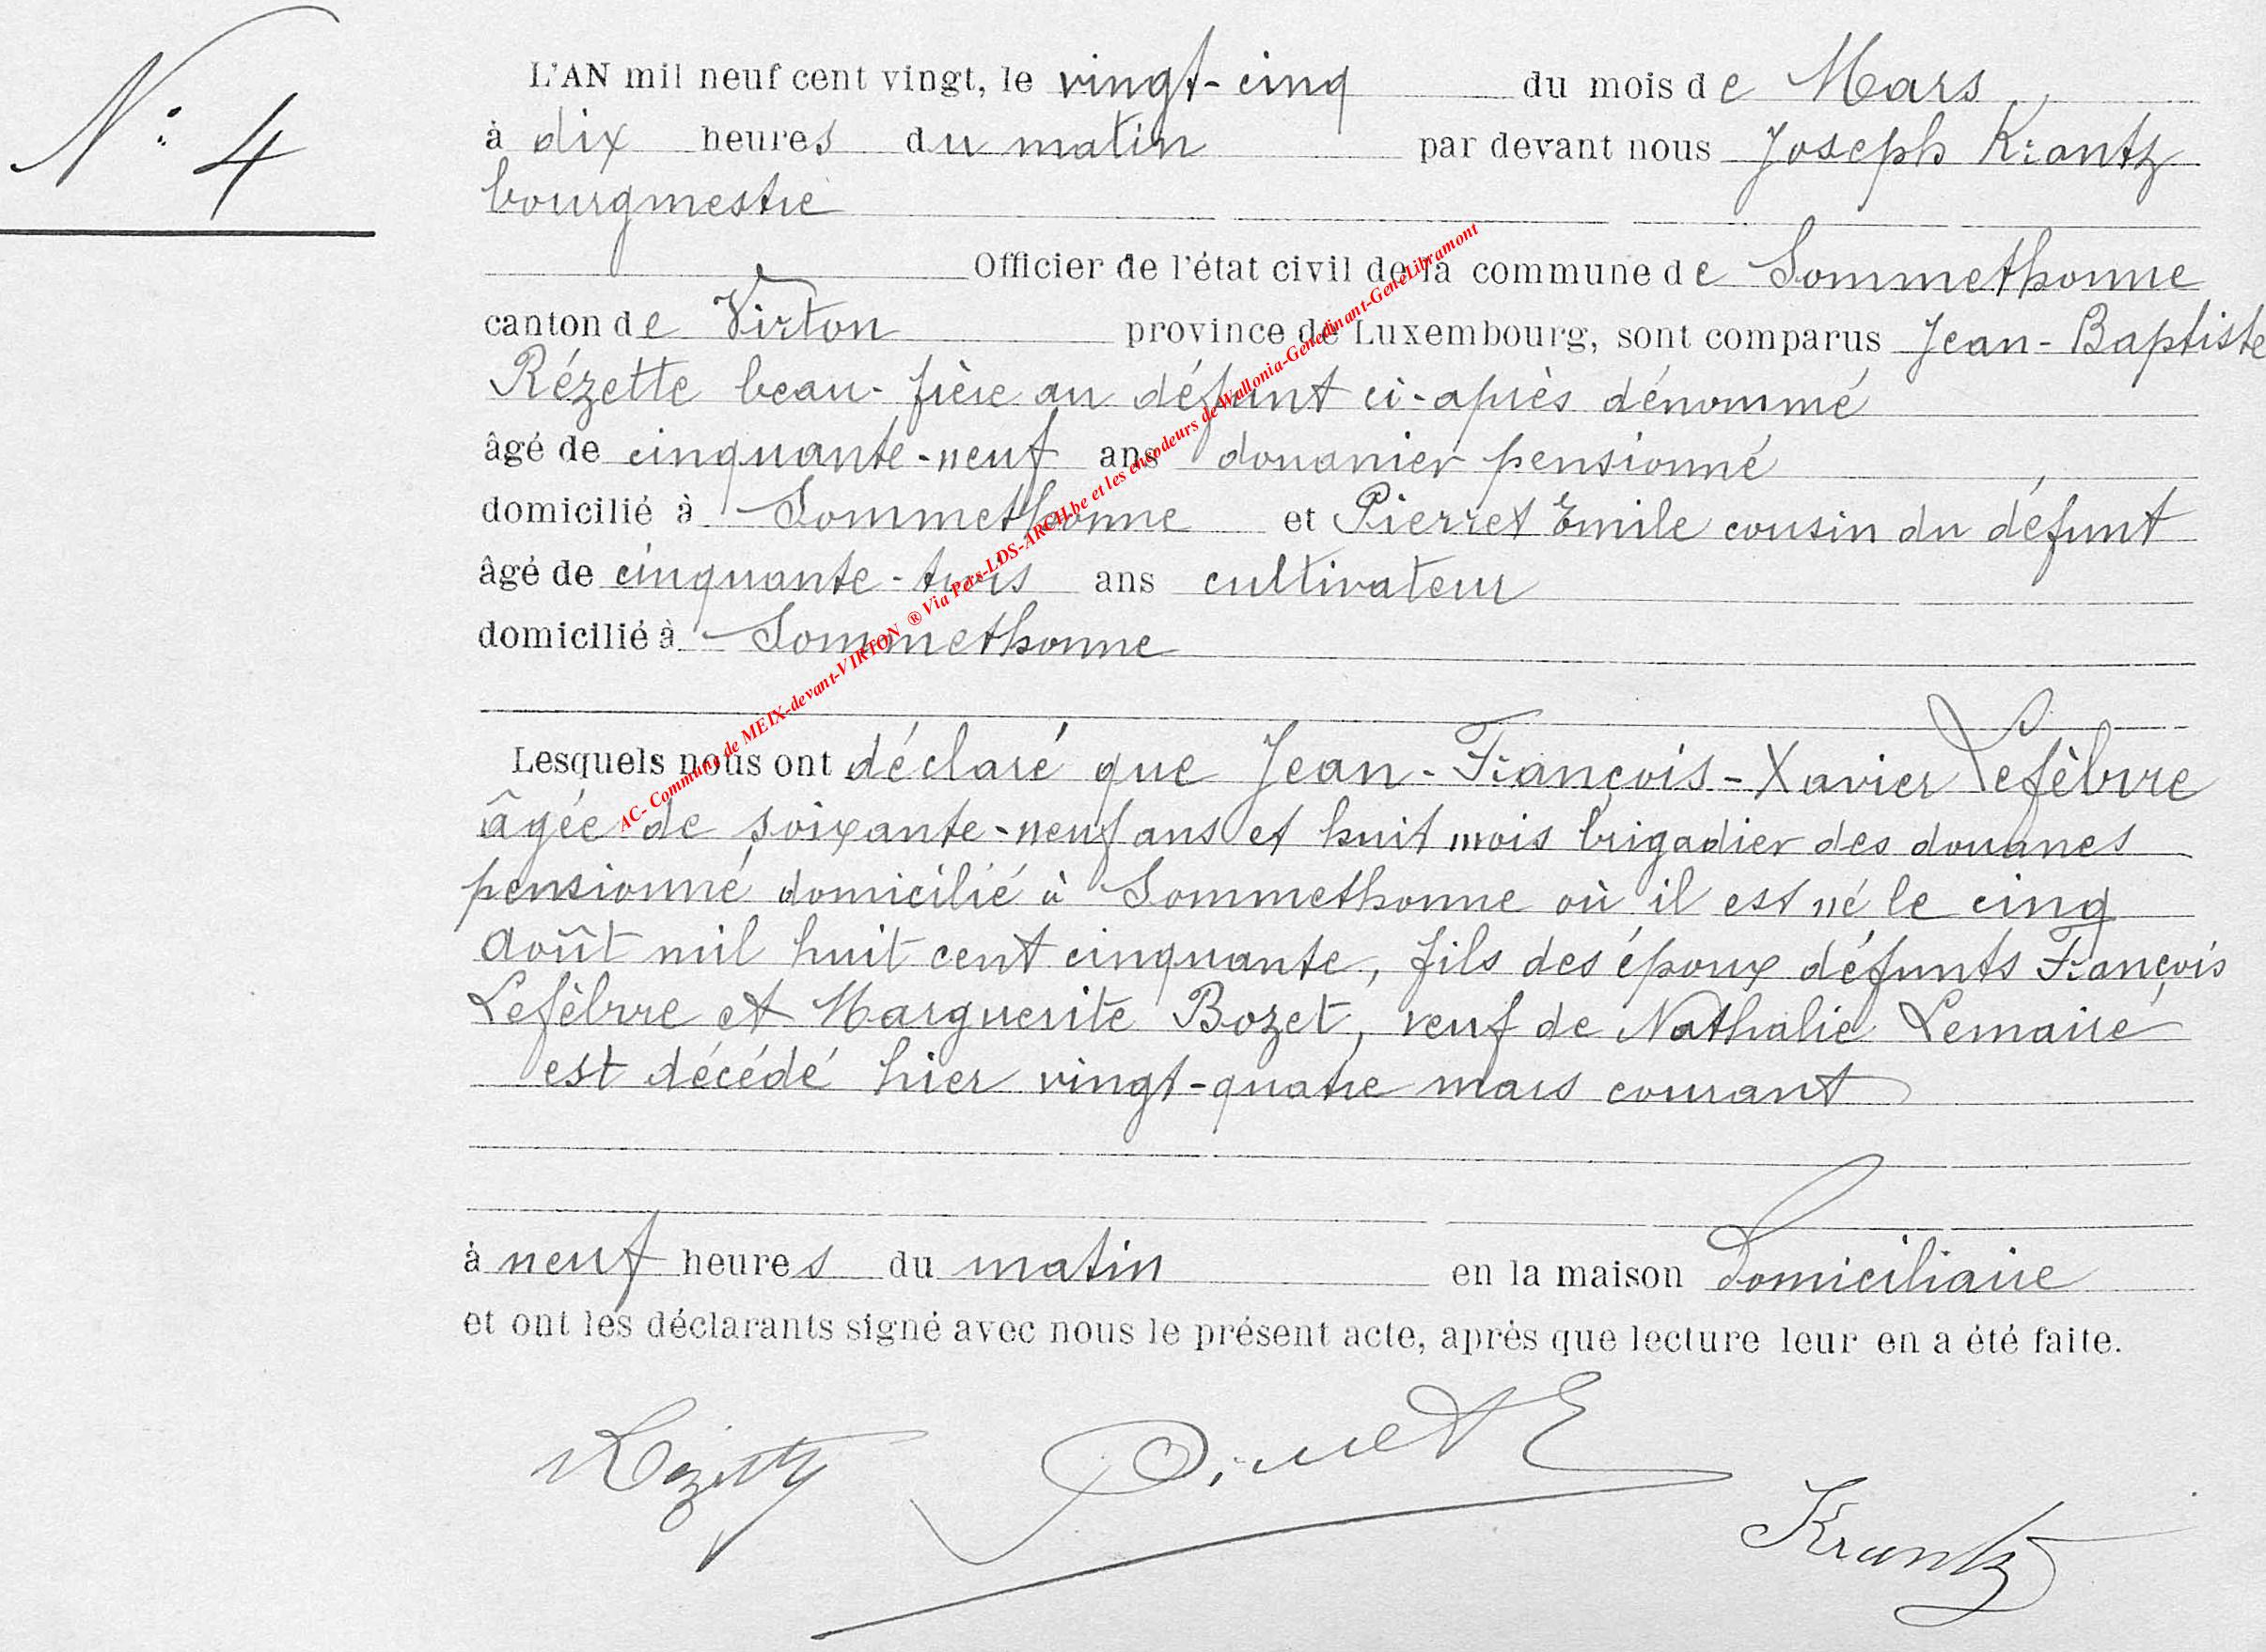 N° 4
L'AN mil neuf cent vingt, le vingt-cinq du mois de Mars
à dix heures du matin par devant nous Joseph Krantz
bourgmestre
Officier de l'état civil de la commune de Sommethonne
canton de Virton province de Luxembourg, sont comparus Jean-Baptiste
Rézette beau-frère au défunt ci-après dénommé
âgé de cinquante-neuf ans douanier pensionné
domicilié à Sommethonne et Pierret Emile cousin du défunt
âgé de cinquante-trois ans cultivateur
domicilié à Sommethonne
Lesquels nous ont déclaré que Jean-François-Xavier Lefèbvre
âgée de soixante-neuf ans et huit mois brigadier des douanes
pensionné domicilié à Sommethonne où il est né le cinq
Août mil huit cent cinquante, fils des époux défunts François
Lefèbvre et Marguerite Bozet, veuf de Nathalie Lemaire
est décédé hier vingt-quatre mars courant
à neuf heures du matin en la maison domiciliaire
et ont les déclarants signé avec nous le présent acte, après que lecture leur en a été faite.
Rézette Pierret E
Krantz
AC- Commune de MEIX-devant-VIRTON ® Via Pers-LDS-ARCH.be et les encodeurs de Wallonia-Genedinant-GeneLibramont